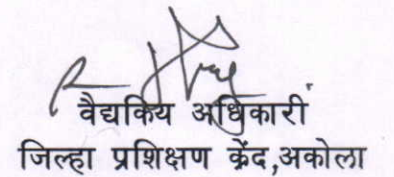 वैद्यकिय अधिकारी
जिल्हा प्रशिक्षण केंद,अकोला